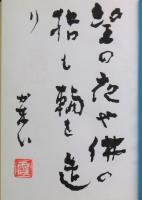 望の夜や佛の
指も輪を造
り